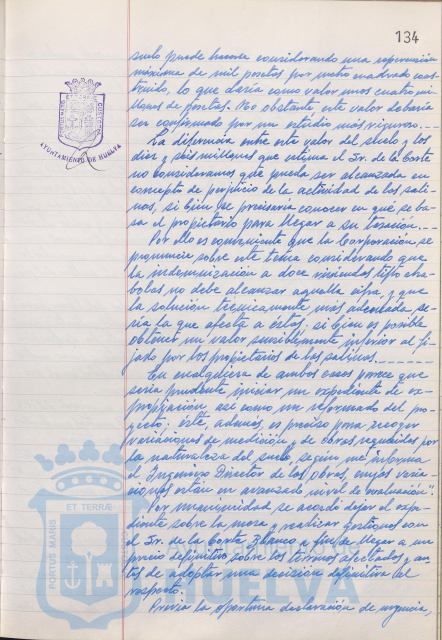 134
suelo puede hacerse considerando una repercusión
máxima de mil pesetas por metro cuadrado cons-
truido, lo que daría como valor unos cuatro mi-
llones de pesetas. No obstante este valor debería
ser confirmado por un estudio más riguroso.
La diferencia entre este valor del suelo y los
diez y seis millones que estima el Sr. de la Corte
no consideramos que pueda ser alcanzada en
concepto de perjuicio de la actividad de las sali-
nas, si bien se precisaría conocer en qué se ba-
sa el propietario para llegar a su tasación.
Por ello es conveniente que la Corporación se
pronuncie sobre este tema considerando que
la indemnización a doce viviendas tipo cha-
bolas no debe alcanzar aquella cifra y que
la solución técnicamente más adecuada se-
ría la que afecta a éstas, si bien es posible
obtener un valor sensiblemente inferior al fi-
jado por los propietarios de las salinas.
En cualquiera de ambos casos parece que
sería prudente iniciar un expediente de ex-
propiación, así como un reformado del pro-
yecto; éste, además, es preciso para recoger
variaciones de medición y de obras requeridas por
la naturaleza del suelo, según me informa
el Ingeniero Director de las obras, cuyas varia-
ciones están en avanzado nivel de evaluación".
Por unanimidad, se acordó dejar el expe-
diente sobre la mesa y realizar gestiones con
el Sr. de la Corte Blanco a fin de llegar a un
precio definitivo sobre los terrenos afectados y an-
tes de adoptar una decisión definitiva al
respecto.
Previa la oportuna declaración de urgencia,
AYUNTAMIENTO DE HUELVA
PORTUS MARIS ET TERRÆ CUSTODIA
HUELVA